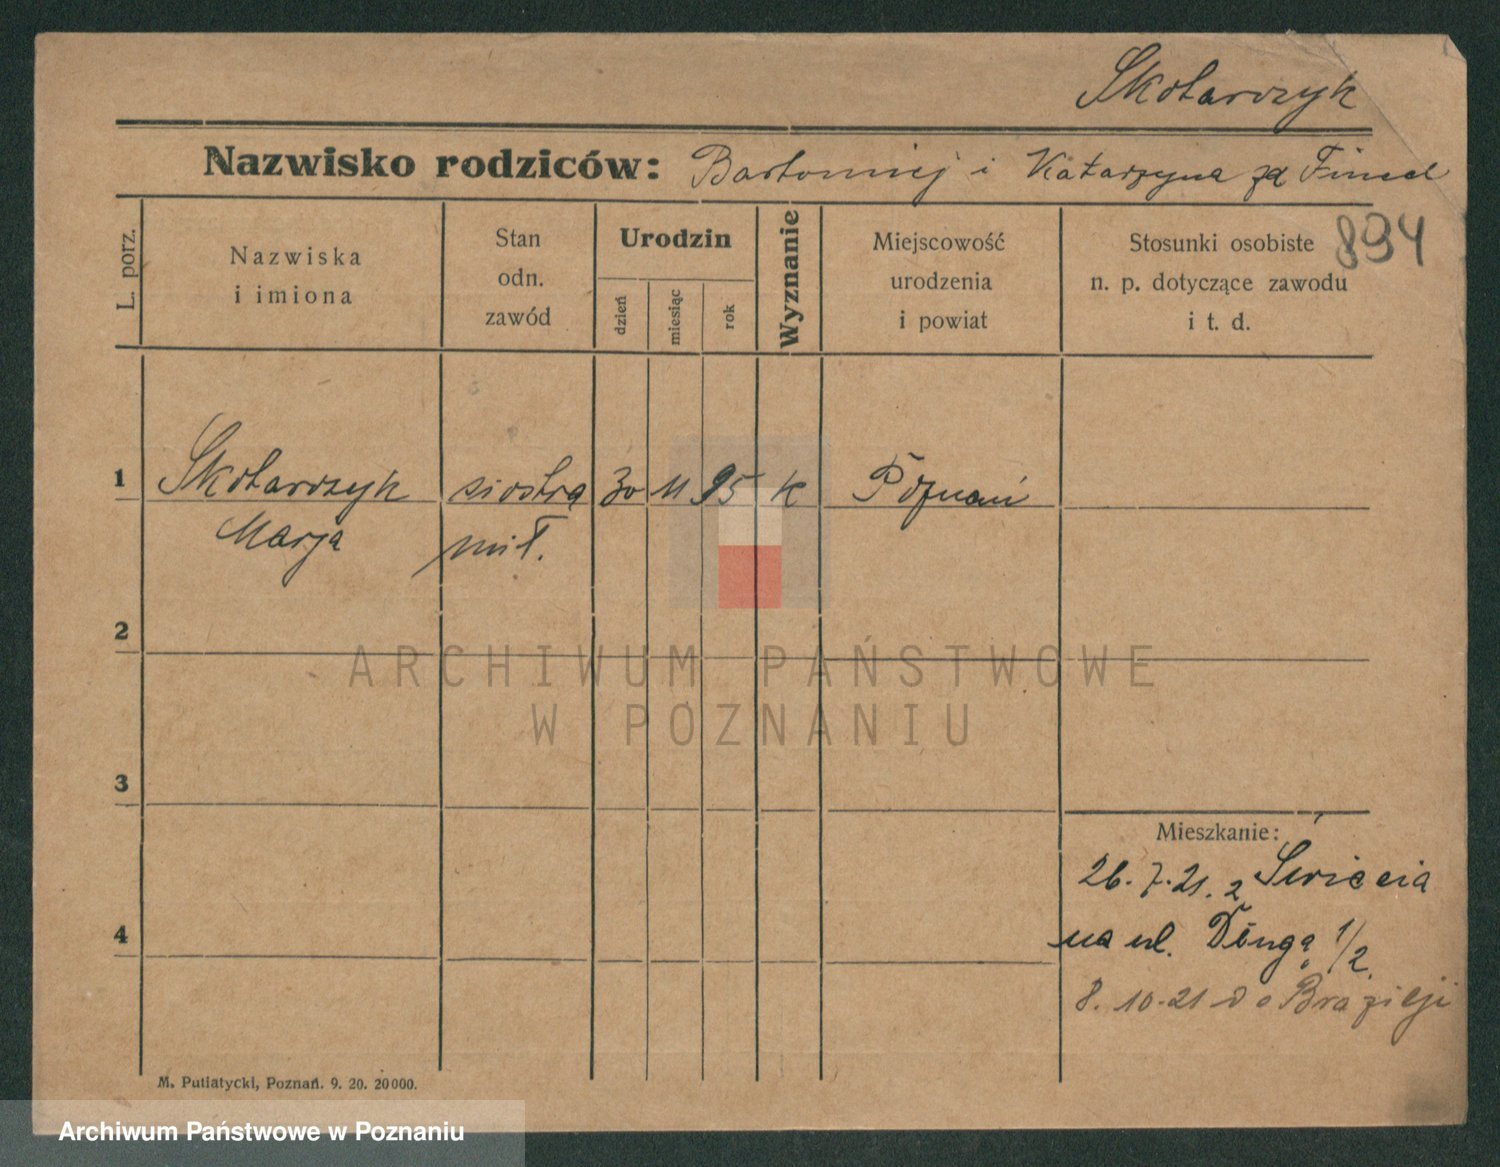 Skotarczyk
Nazwisko rodziców: Bartomiej i Katarzyna zd
894
L. porz.
Nazwiska
i imiona
Stan
odn.
zawód
Urodzin
dzień
miesiąc
rok
Wyznanie
Miejscowość
urodzenia
i powiat
Stosunki osobiste
n. p. dotyczące zawodu
i t. d.
1 Skotarczyk siostra 30 11 95 k Poznań
Marja mił.
2
3
4
Mieszkanie:
26.7.21. z Świecia
na ul. Długą 1/2.
8.10.21 do Brazylji
M. Putiatycki, Poznań. 9. 20. 20000.
ARCHIWUM PAŃSTWOWE
W POZNANIU
Archiwum Państwowe w Poznaniu